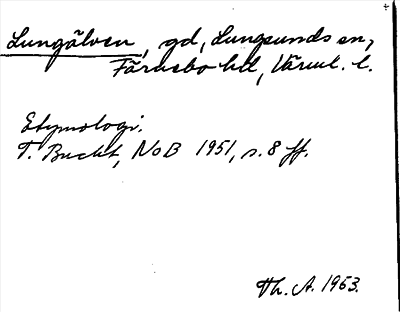 Lungälven, gd, Lungsunds sn,
Färnebo hd, Värml. l.
Etymologi.
T. Bucht, NoB 1951, s. 8 ff.
Th. A. 1953.